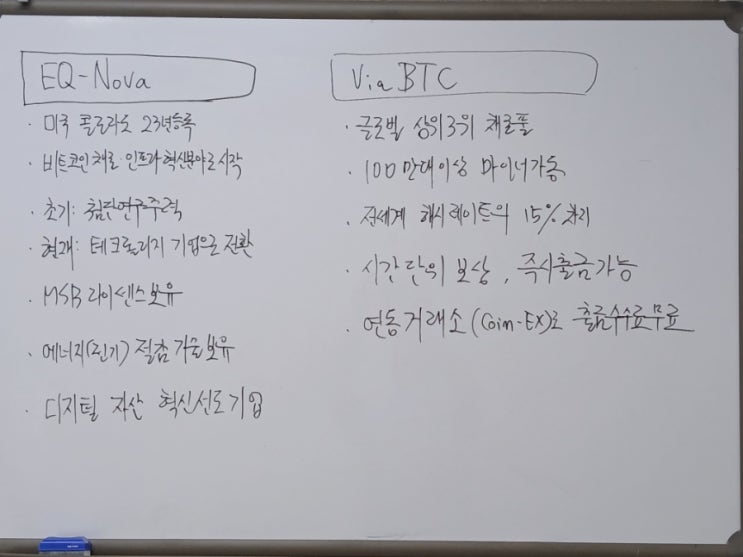 EQ-Nova
· 미국 콜로라도 23년등록
· 비트코인채로·인프라혁신분야로시작
· 초기: 첨단연구주력
· 현재: 테크롤리지 기업으로 전환
· MSB 라이센스보유
· 에너지(전기) 절감기술보유
· 디지털 자산 혁신선도기업
ViaBTC
· 글로벌 상위3위 채굴풀
· 100만대이상 마이너가동
· 전세계 해시레이트의 15%처리
· 시간단위 보상, 즉시출금가능
· 연동거래소(Coin-EX)로 출금수수료무료